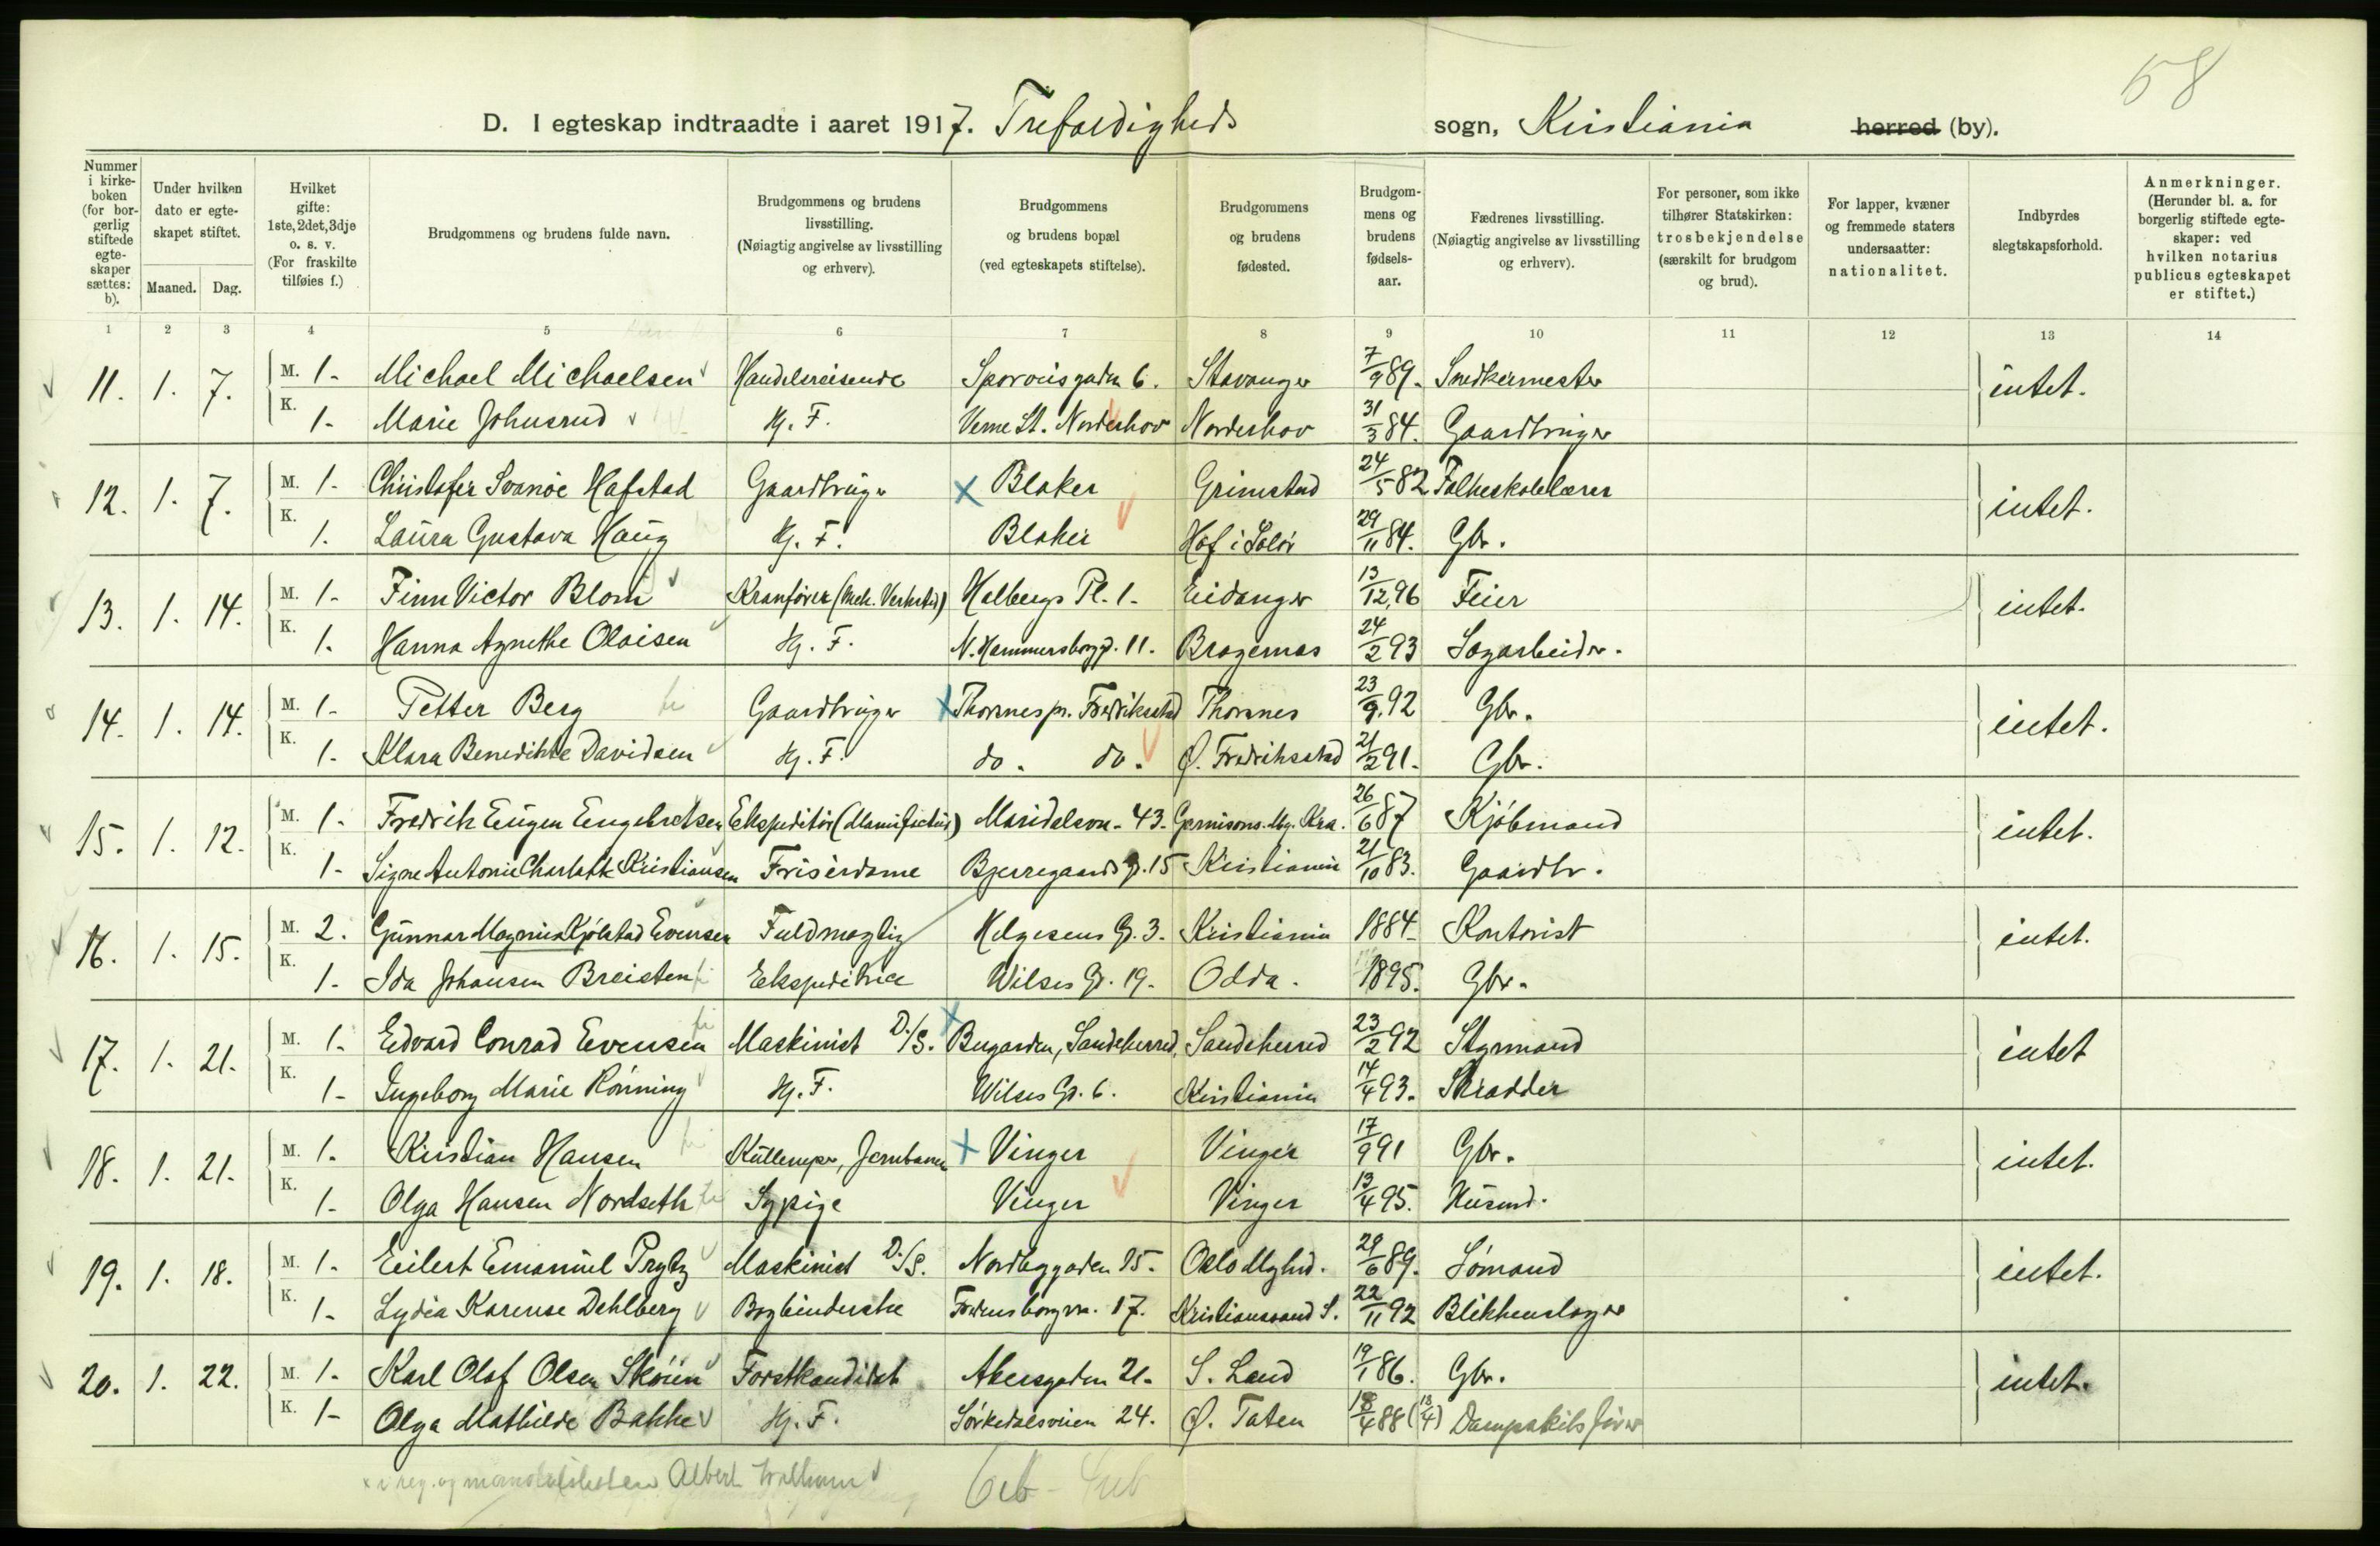 58
D. I egteskap indtraadte i aaret 1917. Trefoldigheds sogn, Kristiania herred (by).
Nummer i kirkeboken (for borgerlig stiftede egteskaper sættes: b).
Under hvilken dato er egteskapet stiftet.
Maaned. Dag.
Hvilket gifte: 1ste, 2det, 3dje o. s. v. (For fraskilte tilføies f.)
Brudgommens og brudens fulde navn.
Brudgommens og brudens livsstilling. (Nøiagtig angivelse av livsstilling og erhverv).
Brudgommens og brudens bopæl (ved egteskapets stiftelse).
Brudgommens og brudens fødested.
Brudgommens og brudens fødselsaar.
Fædrenes livsstilling. (Nøiagtig angivelse av livsstilling og erhverv).
For personer, som ikke tilhører Statskirken: trosbekjendelse (særskilt for brudgom og brud).
For lapper, kvæner og fremmede staters undersaatter: nationalitet.
Indbyrdes slegtskapsforhold.
Anmerkninger. (Herunder bl. a. for borgerlig stiftede egteskaper: ved hvilken notarius publicus egteskapet er stiftet.)
1 2 3 4 5 6 7 8 9 10 11 12 13 14
11. 1. 7. M. 1- Michael Michaelsen Handelsreisende Sporveisgaden 6. Stavanger 7/9 89. Snedkermester intet.
K. 1- Marie Johnsrud Hj. F. Veme St. Norderhov Norderhov 31/3 84. Gaardbruger
12. 1. 7. M. 1- Christofer Svanøe Hafstad Gaardbruger x Blaker Grimstad 24/5 82 Folkeskolelærer intet.
K. 1. Laura Gustava Haug Hj. F. Blaker Hof i Solør 29/11 84. Gbr.
13. 1. 14. M. 1- Finn Victor Blom Kranfører (Mek. Verksted) Holbergs Pl. 1- Eidanger 13/12 96 Feier intet.
K. 1. Hanna Agnethe Olaisen Hj. F. N. Hammersborgg. 11. Bragernæs 24/2 93 Sagarbeider.
14. 1. 14. M. 1- Petter Berg Gaardbruger x Thorsnes pr. Fredriksstad Thorsnes 23/9 92 Gbr. intet.
K. 1- Klara Benedikte Davidsen Hj. F. do. do. Ø. Fredriksstad 21/2 91. Gbr.
15. 1. 12. M. 1- Fredrik Eugen Engebretsen Ekspeditør (Manufactur) Maridalsvn. 43. Garnisons. Mg. Kra. 26/6 87 Kjøbmand intet.
K. 1- Signe Antonie Charlotte Kristiansen Frisørdame Bjerregaards g. 15 Kristiania 21/10 83. Gaardbr.
16. 1. 15. M. 2. Gunnar Magnus Kjølstad Evensen Fuldmægtig Helgesens G. 3. Kristiania 1884. Kontorist intet.
K. 1- Ida Johansen Breisten Ekspeditrice Wilses G. 19. Odda. 1895. Gbr.
17. 1. 21. M. 1. Edvard Conrad Evensen Maskinist D./S. x Bugarden, Sandeherred, Sandeherred 23/2 92 Styrmand intet
K. 1- Ingeborg Marie Rønning Hj. F. Wilses G. 6. Kristiania 14/4 93. Skrædder
18. 1. 21. M. 1. Kristian Hansen Kullemper, Jernbanen x Vinger Vinger 17/9 91 Gbr. intet.
K. 1- Olga Hansen Nordseth Sypige Vinger Vinger 13/4 95. Husmd.
19. 1. 18. M. 1- Eilert Emanuel Prytz Maskinist D./S. Nordbygaden 15. Oslo Mghd. 29/6 89. Sømand intet.
K. 1- Lydia Karense Dehlberg Bogbinderske Fredensborgvn. 17. Kristianssand S. 22/11 92 Blikkenslager
20. 1. 22. M. 1- Karl Olaf Olsen Skøien Forstkandidat Akersgaden 21. S. Land 19/1 86. Gbr. intet.
K. 1- Olga Mathilde Bakke Hj. F. Sørkedalsveien 24. Ø. Toten 18/4 88 (18/4) Dampskibsfører
x i reg. og Albert